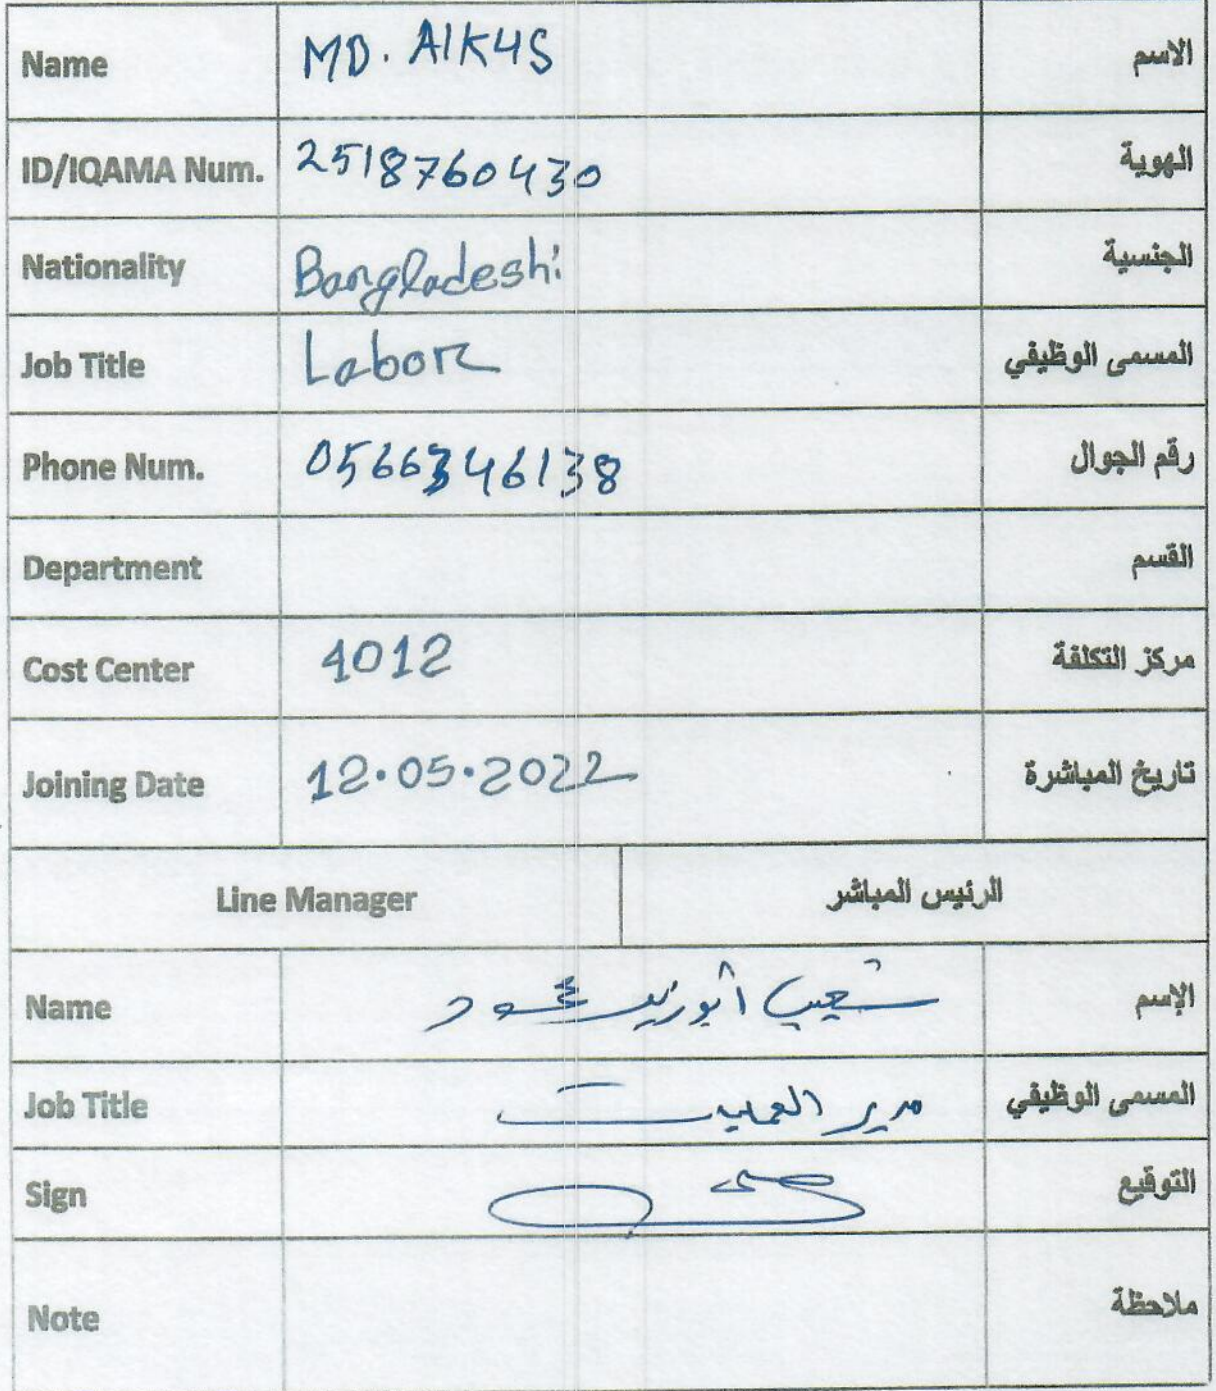 Name MD. AIK4S الاسم
ID/IQAMA Num. 2518760430 الهوية
Nationality Bangladeshi الجنسية
Job Title Labor المسمى الوظيفي
Phone Num. 0566346138 رقم الجوال
Department القسم
Cost Center 4012 مركز التكلفة
Joining Date 12.05.2022 تاريخ المباشرة
Line Manager الرئيس المباشر
Name شعيب أبوزيد محمود الإسم
Job Title مدير العمليات المسمى الوظيفي
Sign التوقيع
Note ملاحظة